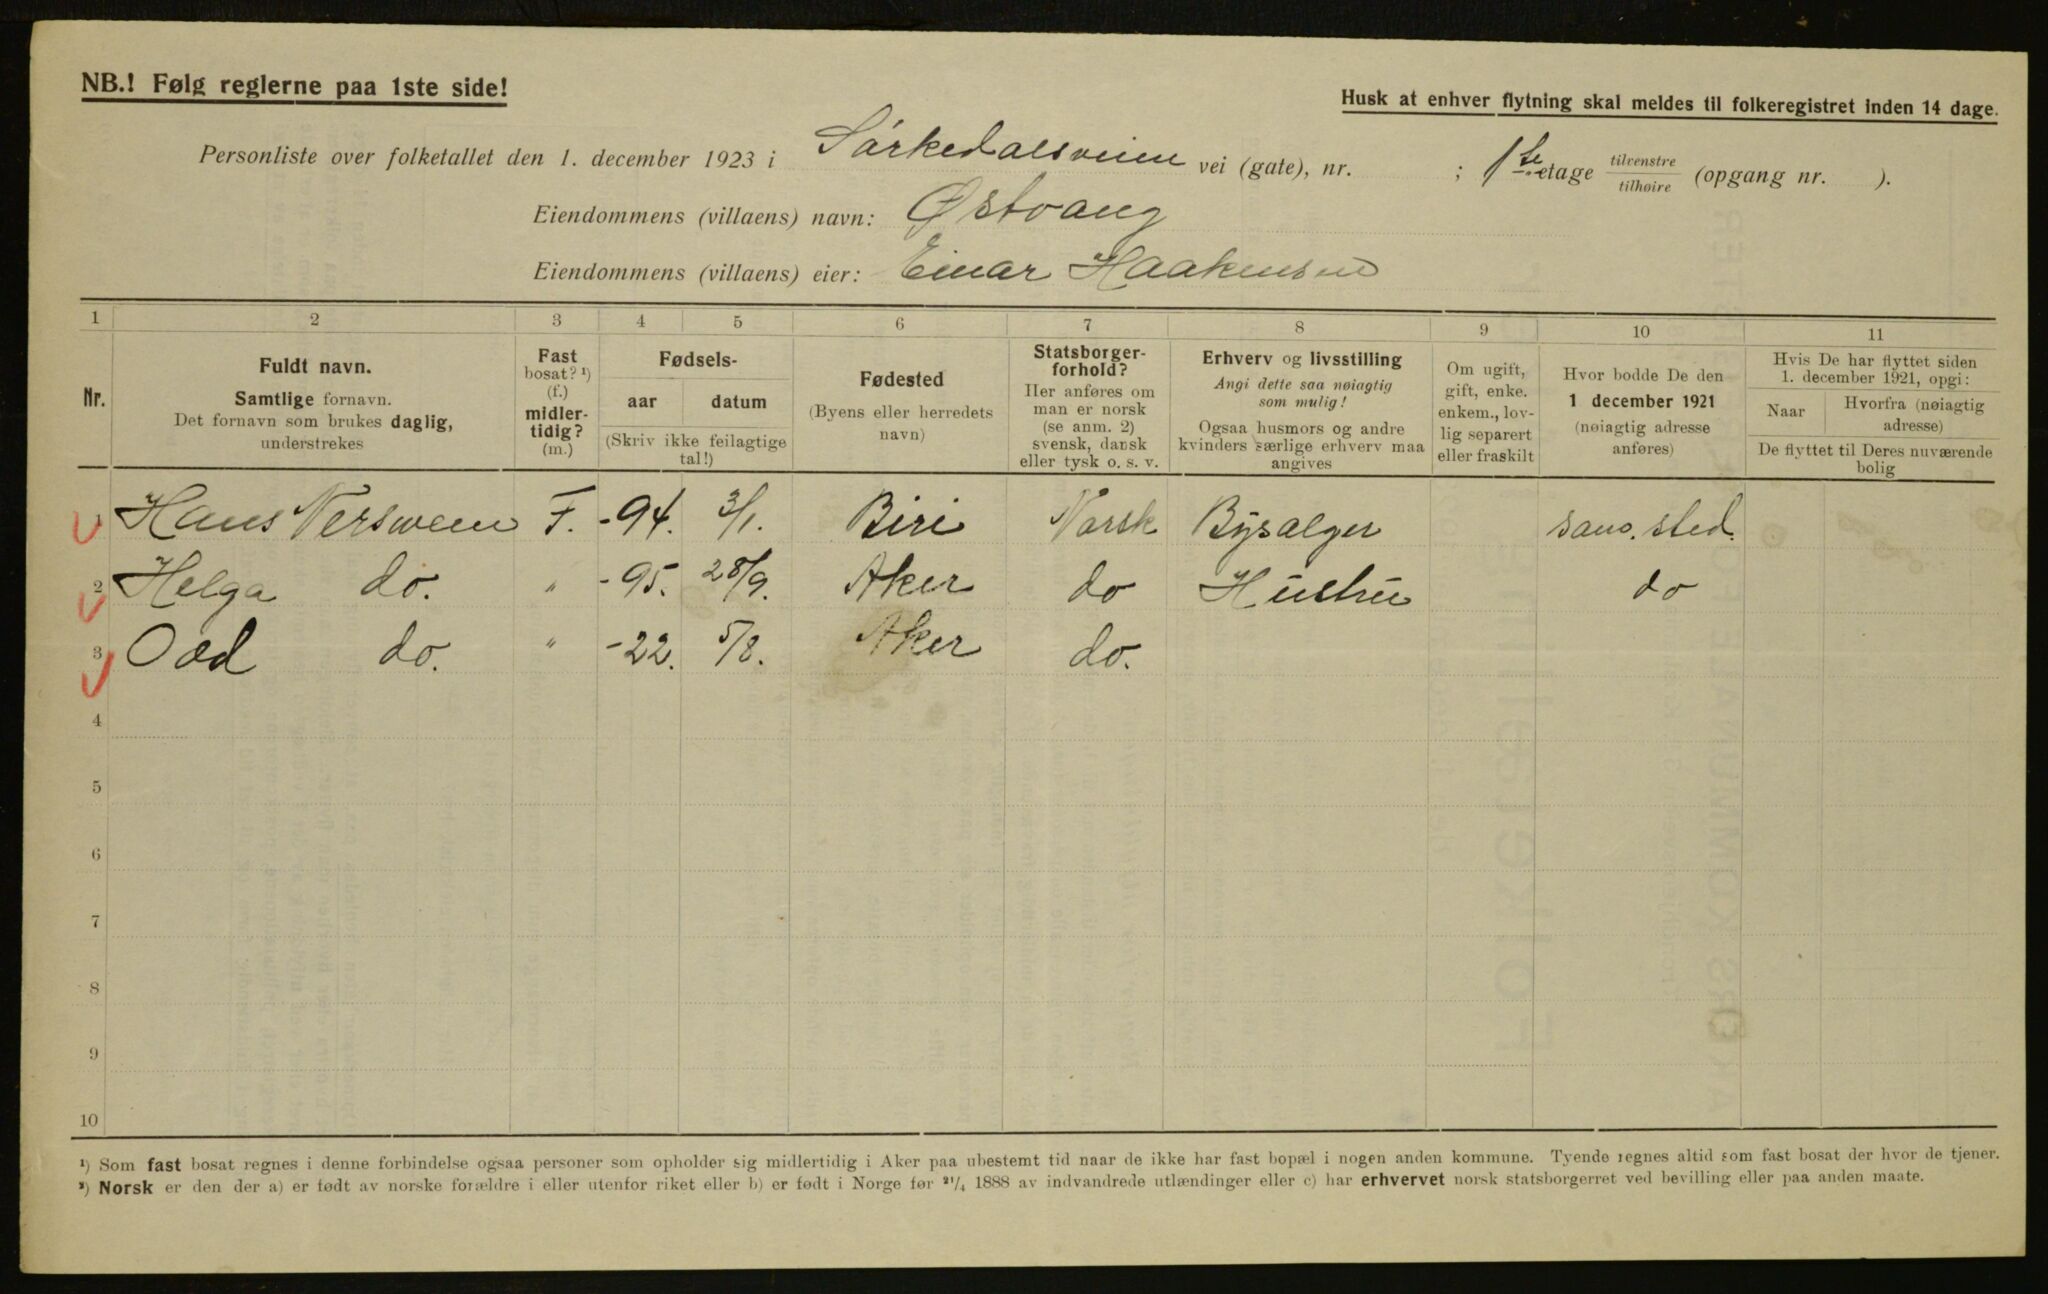 NB.! Følg reglerne paa 1ste side!
Husk at enhver flytning skal meldes til folkeregistret inden 14 dage.
Personliste over folketallet den 1. december 1923 i Sørkedalsveien vei (gate), nr. ; 1ste etage tilvenstre tilhøire (opgang nr. ).
Eiendommens (villaens) navn: Østvang
Eiendommens (villaens) eier: Einar Haakensen
1 2 3 4 5 6 7 8 9 10 11
Nr.
Fuldt navn.
Samtlige fornavn.
Det fornavn som brukes daglig,
understrekes
Fast
bosat? ¹)
(f.)
midler-
tidig?
(m.)
Fødsels-
aar datum
(Skriv ikke feilagtige
tal!)
Fødested
(Byens eller herredets
navn)
Statsborger-
forhold?
Her anføres om
man er norsk
(se anm. 2)
svensk, dansk
eller tysk o. s. v.
Erhverv og livsstilling
Angi dette saa nøiagtig
som mulig!
Ogsaa husmors og andre
kvinders særlige erhverv maa
angives
Om ugift,
gift, enke.
enkem., lov-
lig separert
eller fraskilt
Hvor bodde De den
1 december 1921
(nøiagtig adresse
anføres)
Hvis De har flyttet siden
1. december 1921, opgi:
Naar
Hvorfra (nøiagtig
adresse)
De flyttet til Deres nuværende
bolig
1 Hans Nersween F. -94. 3/1. Biri Norsk Bysalger sam. sted.
2 Helga do. " -95. 28/9. Aker do Hustru do
3 Odd do. " -22. 5/8. Aker do.
4
5
6
7
8
9
10
¹) Som fast bosat regnes i denne forbindelse ogsaa personer som opholder sig midlertidig i Aker paa ubestemt tid naar de ikke har fast bopæl i nogen anden kommune. Tyende regnes altid som fast bosat der hvor de tjener.
²) Norsk er den der a) er født av norske forældre i eller utenfor riket eller b) er født i Norge før ²¹/₄ 1888 av indvandrede utlændinger eller c) har erhvervet norsk statsborgerret ved bevilling eller paa anden maate.